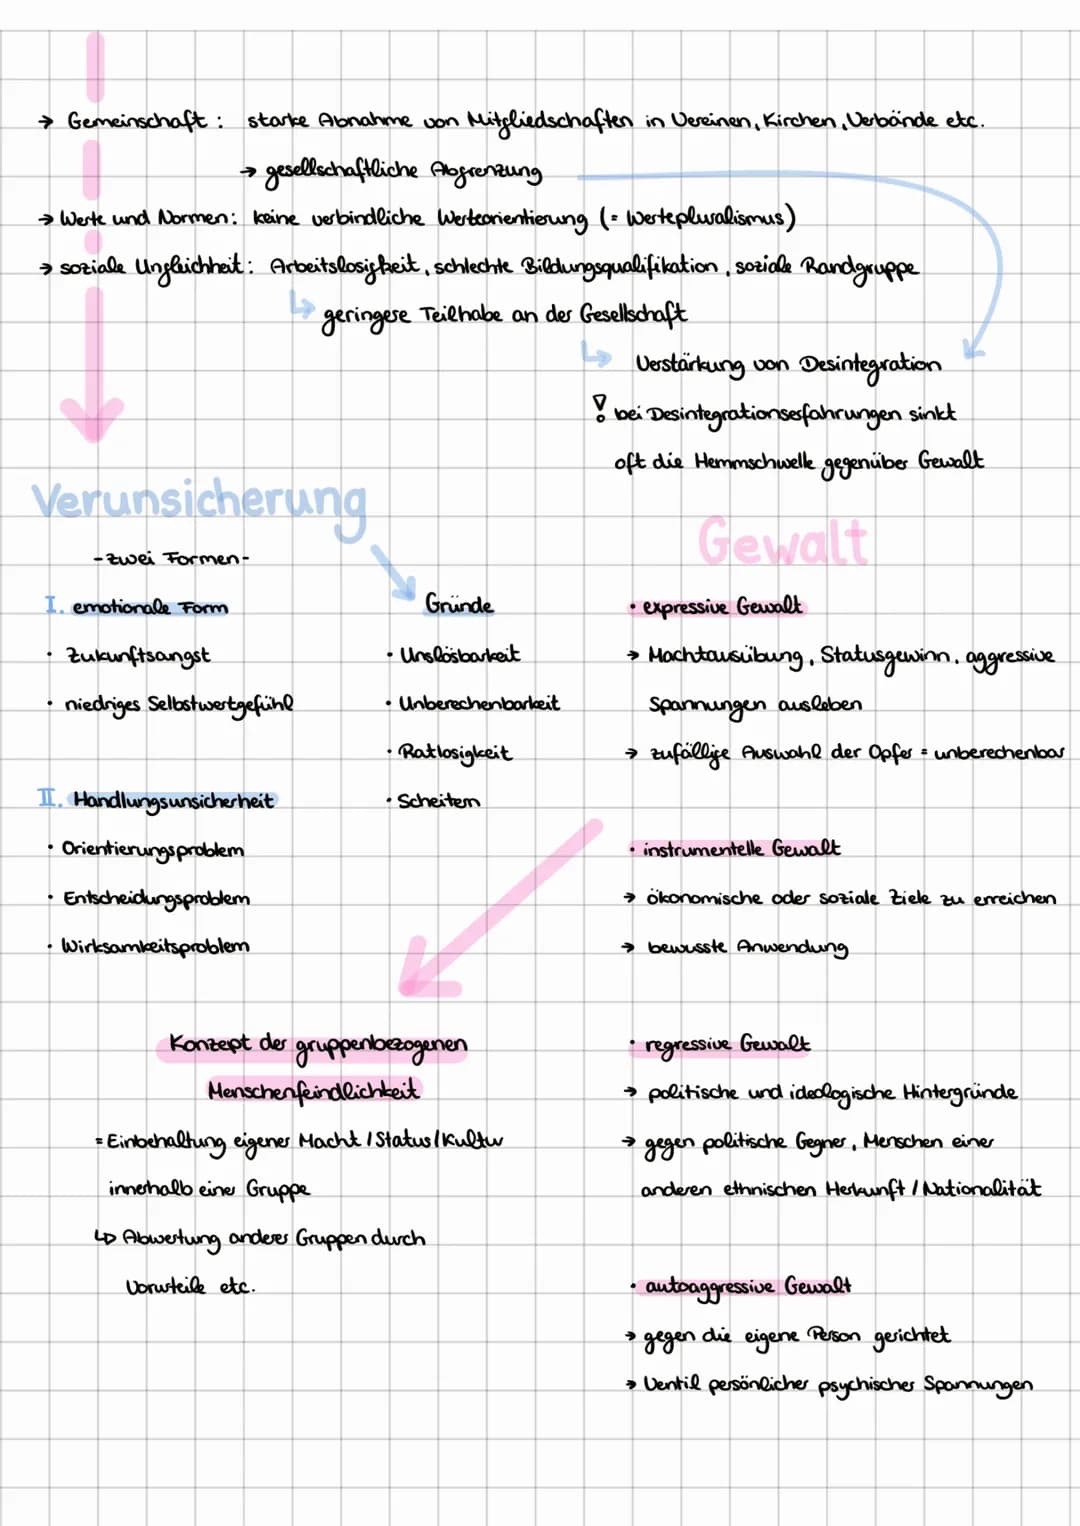 → Gemeinschaft: starke Abnahme von Mitgliedschaften in Vereinen, Kirchen, Verbände etc.
→ gesellschaftliche Abgrenzung
→ Werte und Normen: keine verbindliche Werteorientierung (= Wertepluralismus)
→ soziale Ungleichheit: Arbeitslosigkeit, schlechte Bildungsqualifikation, soziale Randgruppe
↳ geringere Teilhabe an der Gesellschaft
↳ Verstärkung von Desintegration
! bei Desintegrationserfahrungen sinkt
oft die Hemmschwelle gegenüber Gewalt
Verunsicherung
-zwei Formen-
I. emotionale Form
• Zukunftsangst
• niedriges Selbstwertgefühl
II. Handlungsunsicherheit
• Orientierungsproblem
• Entscheidungsproblem
• Wirksamkeitsproblem
Gründe
• Unslösbarkeit
• Unberechenbarkeit
• Ratlosigkeit
• Scheitern
Konzept der gruppenbezogenen
Menschenfeindlichkeit
= Einbehaltung eigener Macht / Status / Kultur
innerhalb einer Gruppe
↳ Abwertung anderer Gruppen durch
Vorurteile etc.
Gewalt
• expressive Gewalt
→ Machtausübung, Statusgewinn, aggressive
Spannungen ausleben
→ zufällige Auswahl der Opfer = unberechenbar
• instrumentelle Gewalt
→ ökonomische oder soziale Ziele zu erreichen
→ bewusste Anwendung
• regressive Gewalt
→ politische und ideologische Hintergründe
→ gegen politische Gegner, Menschen einer
anderen ethnischen Herkunft / Nationalität
• autoaggressive Gewalt
→ gegen die eigene Person gerichtet
→ Ventil persönlicher psychischer Spannungen